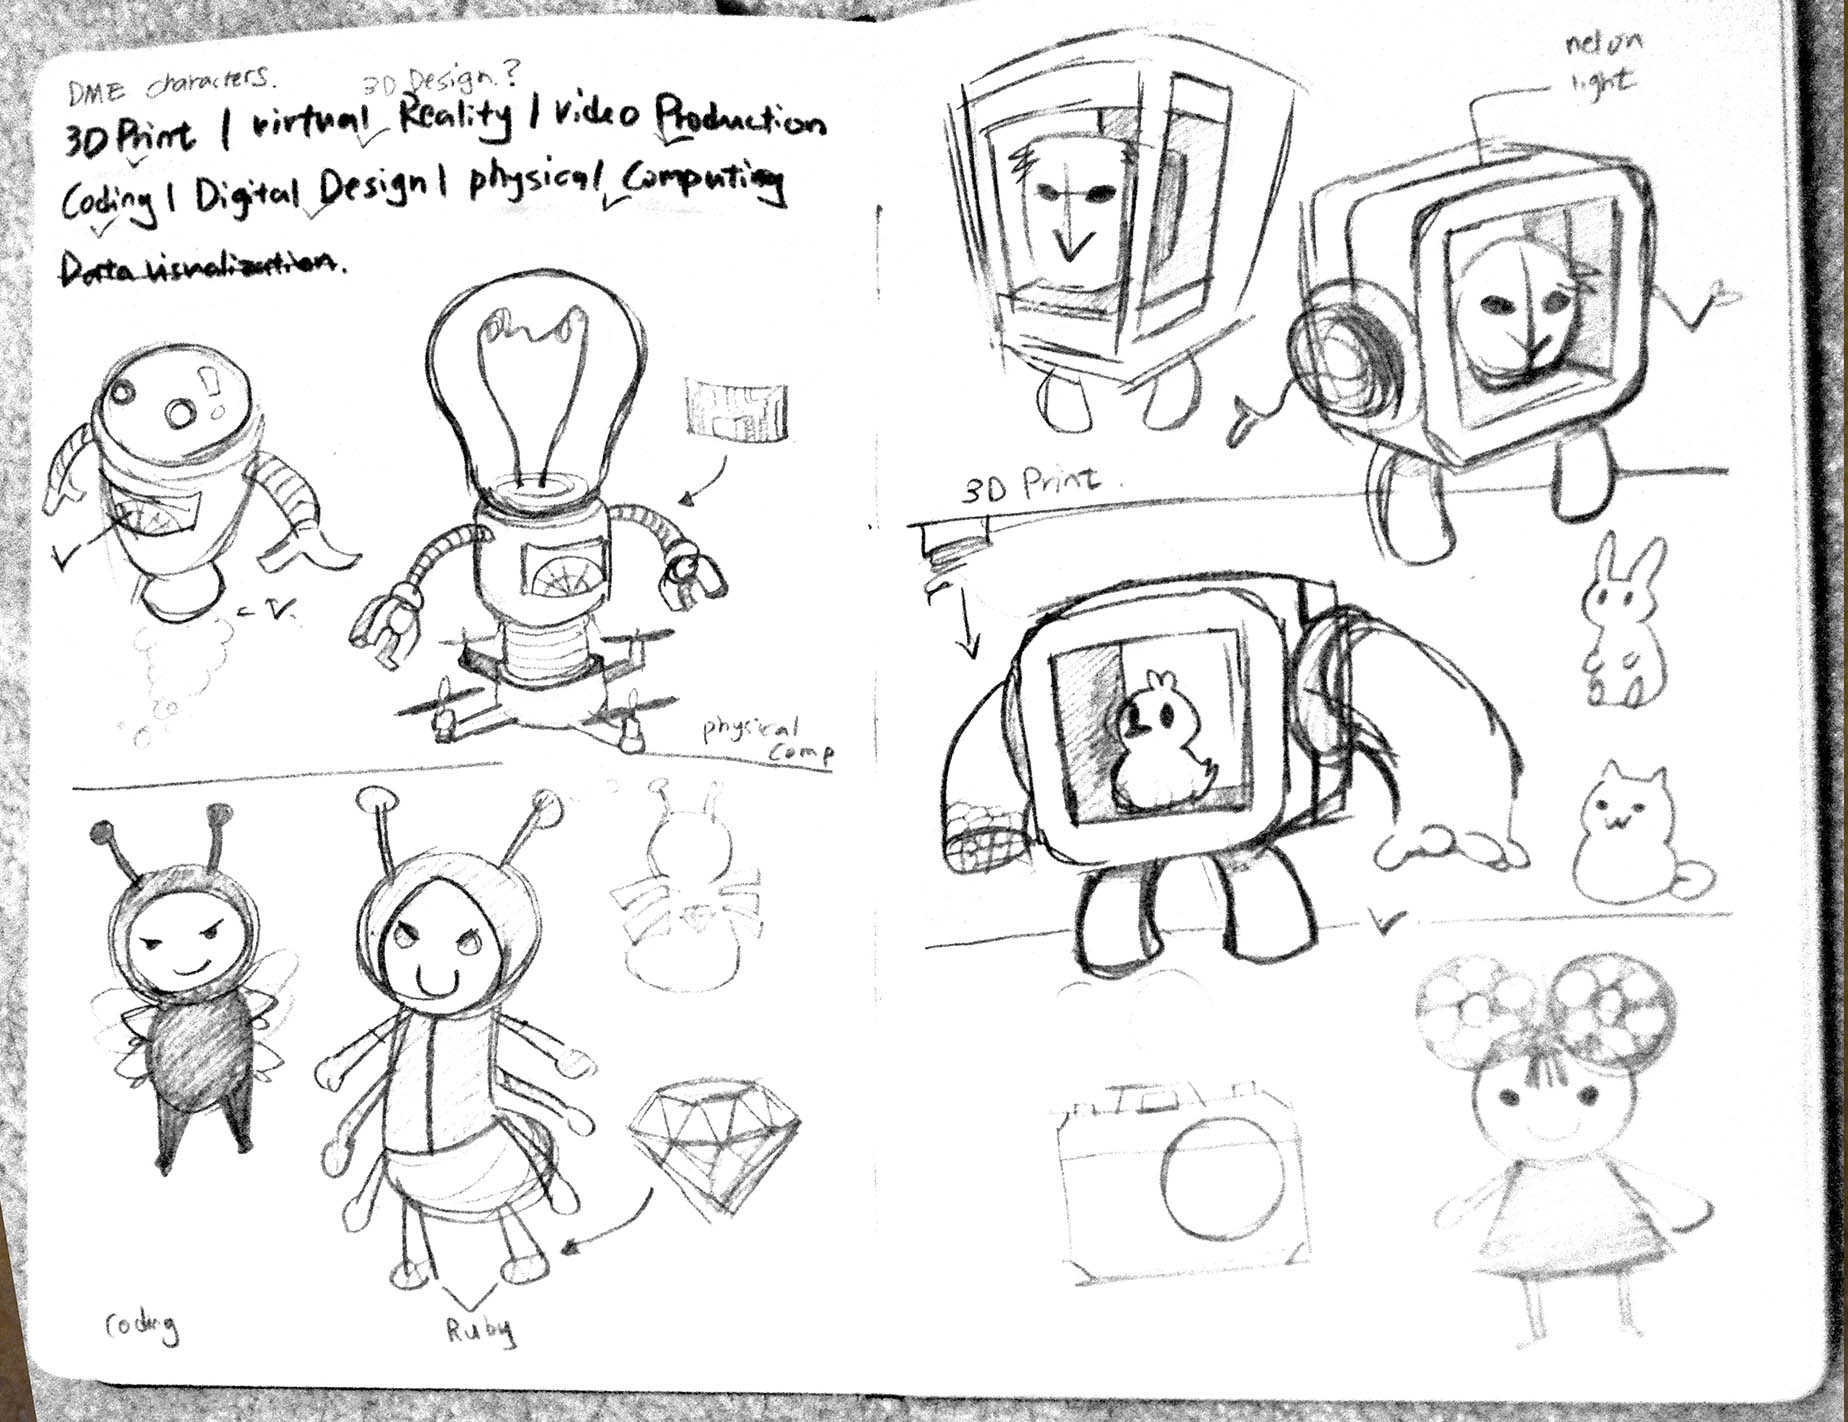 DME characters. 3D Design?
3D Print / virtual Reality / video Production
Coding / Digital Design / physical Computing
Data visualization.
physical
comp
Coding
Ruby
light
3D Print.